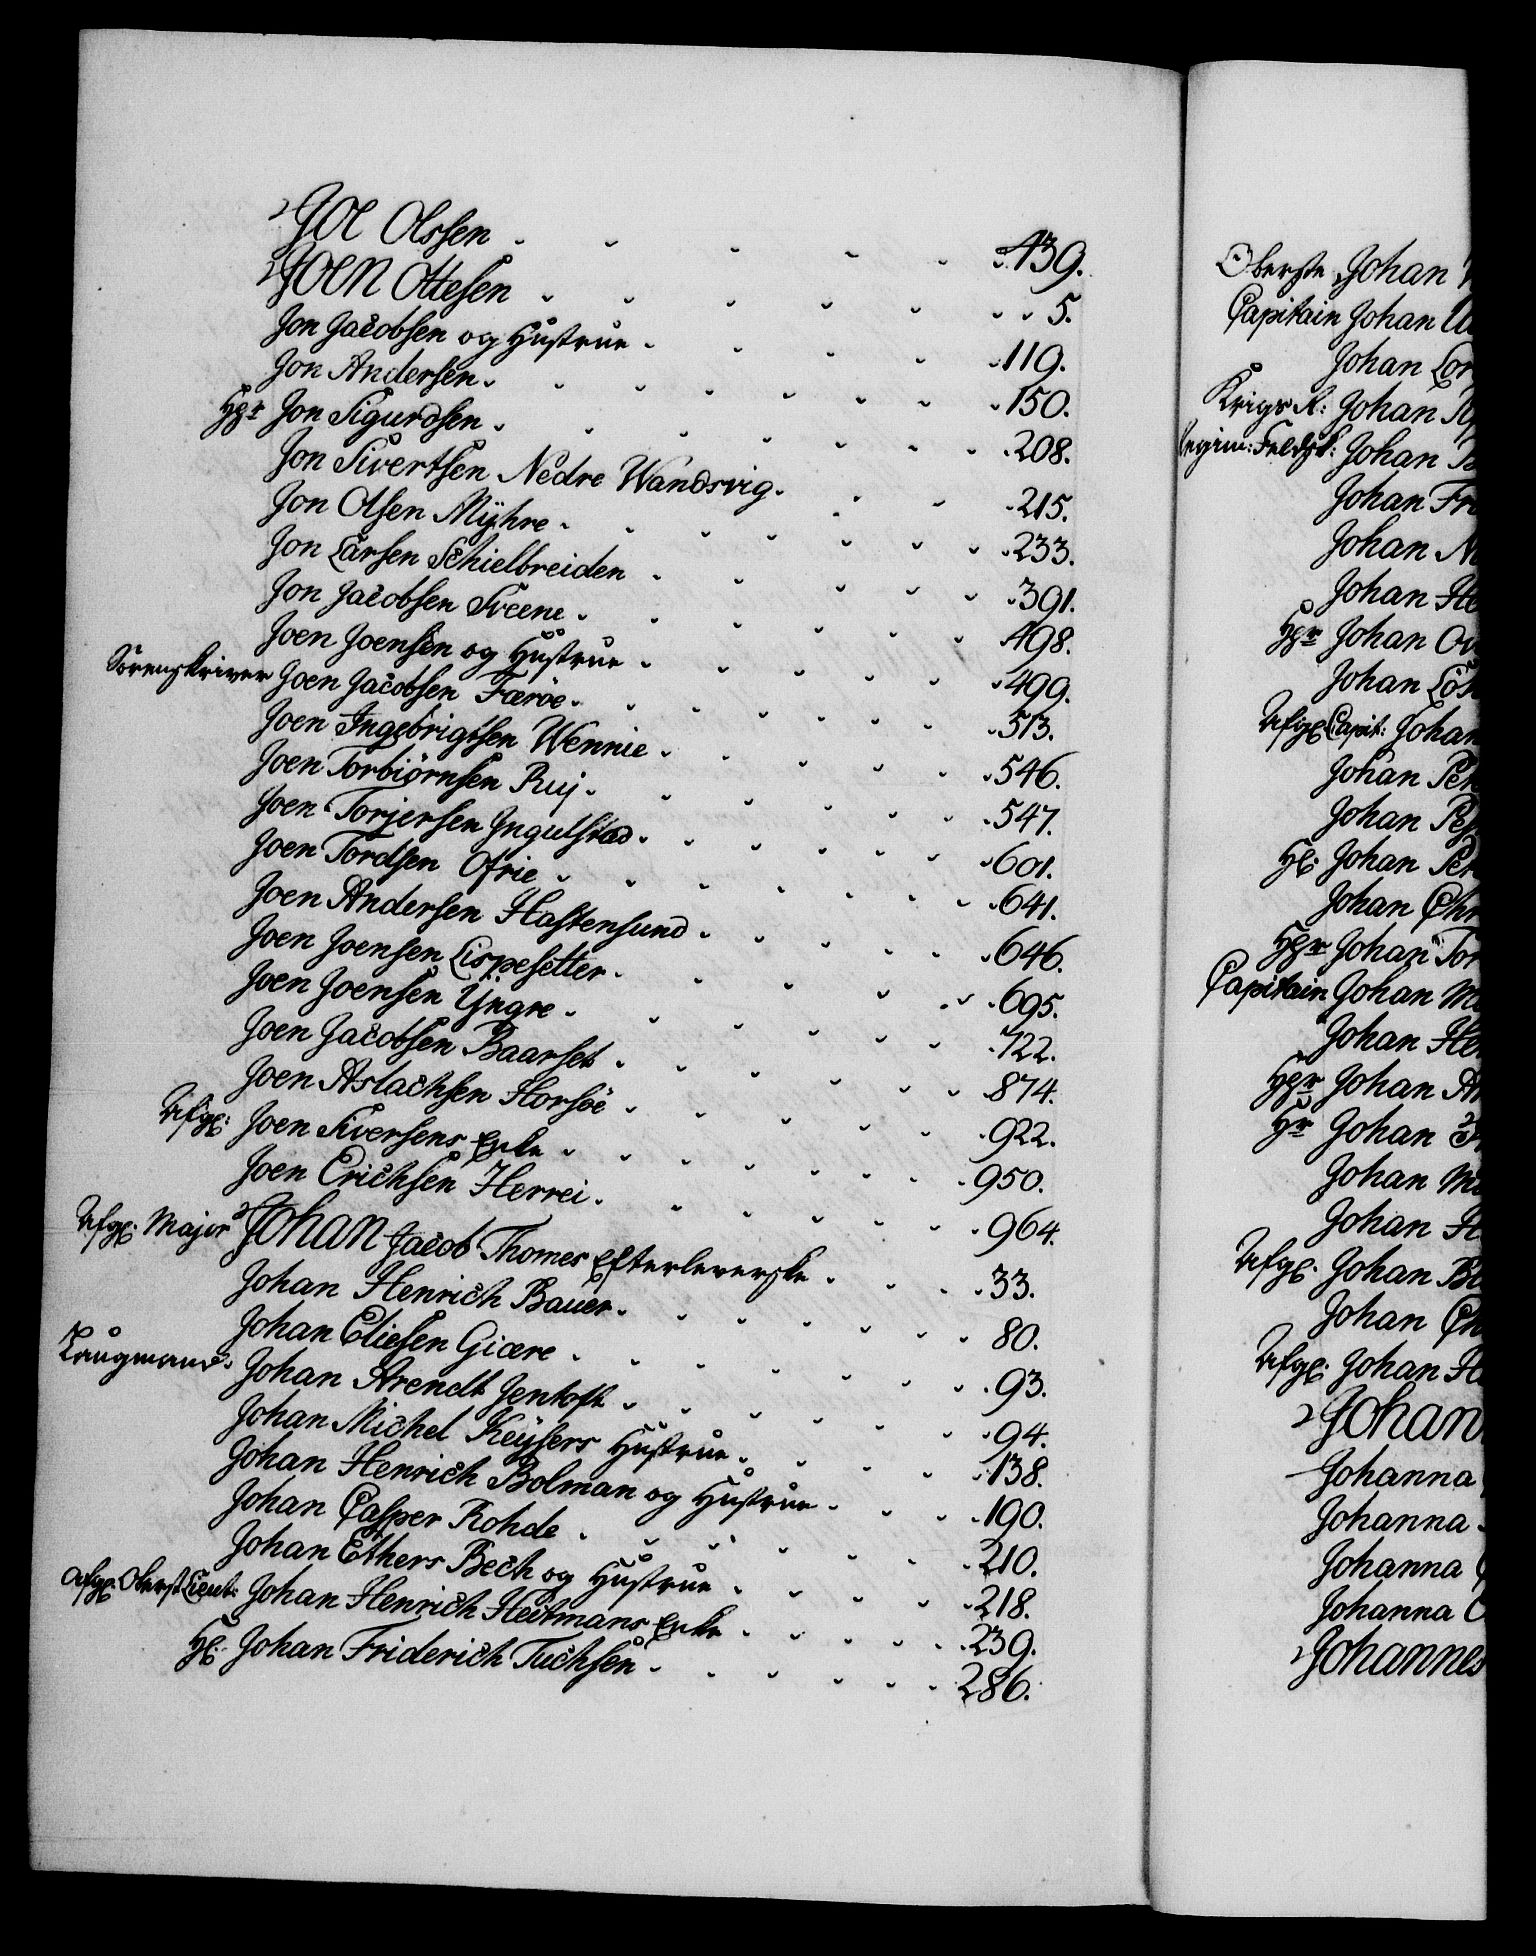 Joe Olssen 439.
Joen Ottesen 5.
Jon Jacobsen og Hustrue 119.
Jon Andersen 150.
Hgr Jon Sigurdsen 208.
Jon Sivertsen Nedre Wandsvig 215.
Jon Olsen Mÿhre 233.
Jon Larsen Schielbreiden 391.
Jon Jacobsen Sveene 498.
Joen Joensen og Hustrue 499.
Sorenskriver Joen Jacobsen Færöe 513.
Joen Ingebrigtsen Wennie 546.
Joen Torbiörnsen Ruj 547.
Joen Torjersen Ingulstad 601.
Joen Tordsen Ofrie 641.
Joen Andersen Hastensund 646.
Joen Joensen Lispesetter 695.
Joen Joensen Ÿngre 722.
Joen Jacobsen Baarset 874.
Joen Aslachsen Horsöe 922.
Afg: Joen Siversens Enke 950.
Joen Erichsen Herrei 964.
Afg: Major Johan Jacob Thomes Efterleverske 33.
Johan Henrich Bauer 80.
Johan Eliesen Giære 93.
Laugmand Johan Arendt Jentoft 94.
Johan Michel Keÿsers Hustrue 138.
Johan Henrich Bolman og Hustrue 190.
Johan Casper Rohde 210.
Johan Ethers Bech og Hustrue 218.
Afg: Oberst Lieut: Johan Henrich Heitmans Enke 239.
Hl: Johan Friderich Tuchsen 286.
Oberste Johan
Capitain Johan
Johan
Krigs R: Johan
Regim: Feldsk: Johan
Johan
Johan
Johan
Hgr Johan
Johan
Afg: Capit: Johan
Johan
Johan
Hl: Johan
Johan
Hgr Johan
Capitain Johan
Johan
Hgr Johan
Hr Johan
Johan
Johan
Afg: Johan
Johan
Afg: Johan
Johan
Johanna
Johanna
Johanna
Johanna
Johannes